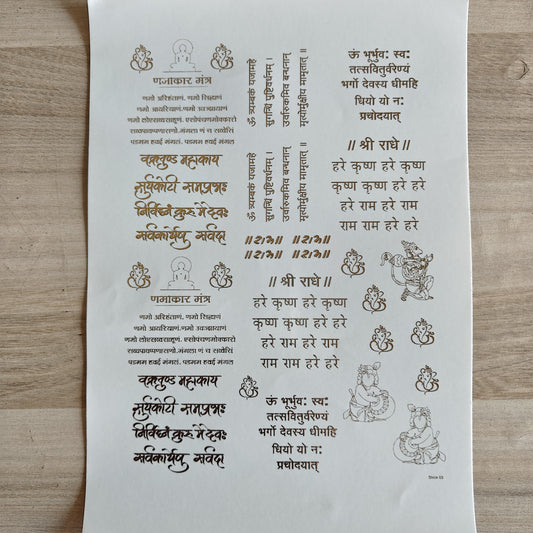 णमाकार मंत्र
णमो अरिहंताणं, णमो सिद्धाणं
णमो आयरियाणं, णमो उवज्झायाणं
णमो लोएसव्वसाहूणं, एसोपंचणमोक्कारो
सव्वपावप्पणासणो.मंगला णं च सव्वेसिं
पडमम हवई मंगलं, पडमम हवई मंगलं
वक्रतुण्ड महाकाय
सुर्यकोटी समप्रभः
निर्विघ्नं कुरु मे देवः
सर्वकार्येषु सर्वदा
ॐ त्र्यम्बकं यजामहे
सुगन्धिं पुष्टिवर्धनम् ।
उर्वारुकमिव बन्धनान्
मृत्योर्मुक्षीय मामृतात् ॥
ॐ त्र्यम्बकं यजामहे
सुगन्धिं पुष्टिवर्धनम् ।
उर्वारुकमिव बन्धनान्
मृत्योर्मुक्षीय मामृतात् ॥
ऊं भूर्भुवः स्वः
तत्सवितुर्वरेण्यं
भर्गो देवस्य धीमहि
धियो यो नः
प्रचोदयात्
// श्री राधे //
हरे कृष्ण हरे कृष्ण
कृष्ण कृष्ण हरे हरे
हरे राम हरे राम
राम राम हरे हरे
॥राम॥ ॥राम॥
॥राम॥ ॥राम॥
णमाकार मंत्र
णमो अरिहंताणं, णमो सिद्धाणं
णमो आयरियाणं, णमो उवज्झायाणं
णमो लोएसव्वसाहूणं, एसोपंचणमोक्कारो
सव्वपावप्पणासणो.मंगला णं च सव्वेसिं
पडमम हवई मंगलं, पडमम हवई मंगलं
वक्रतुण्ड महाकाय
सुर्यकोटी समप्रभः
निर्विघ्नं कुरु मे देवः
सर्वकार्येषु सर्वदा
// श्री राधे //
हरे कृष्ण हरे कृष्ण
कृष्ण कृष्ण हरे हरे
हरे राम हरे राम
राम राम हरे हरे
ऊं भूर्भुवः स्वः
तत्सवितुर्वरेण्यं
भर्गो देवस्य धीमहि
धियो यो नः
प्रचोदयात्